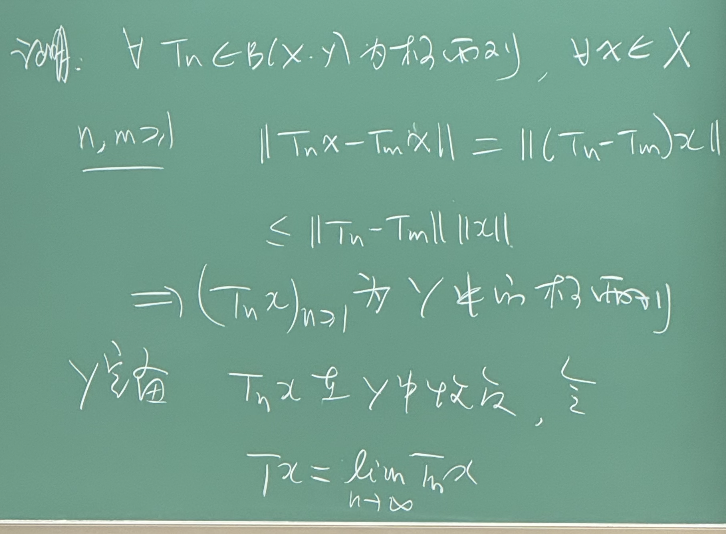 证明: ∀ Tn ∈ B(X.Y) 为柯西列, ∀x ∈ X
n, m≥1 ‖Tnx − Tmx‖ = ‖(Tn − Tm)x‖
≤ ‖Tn − Tm‖ ‖x‖
⟹ (Tnx)n≥1 为 Y 中的柯西列
Y完备 Tnx 在 Y 中收敛, 令
Tx = lim Tnx
n→∞